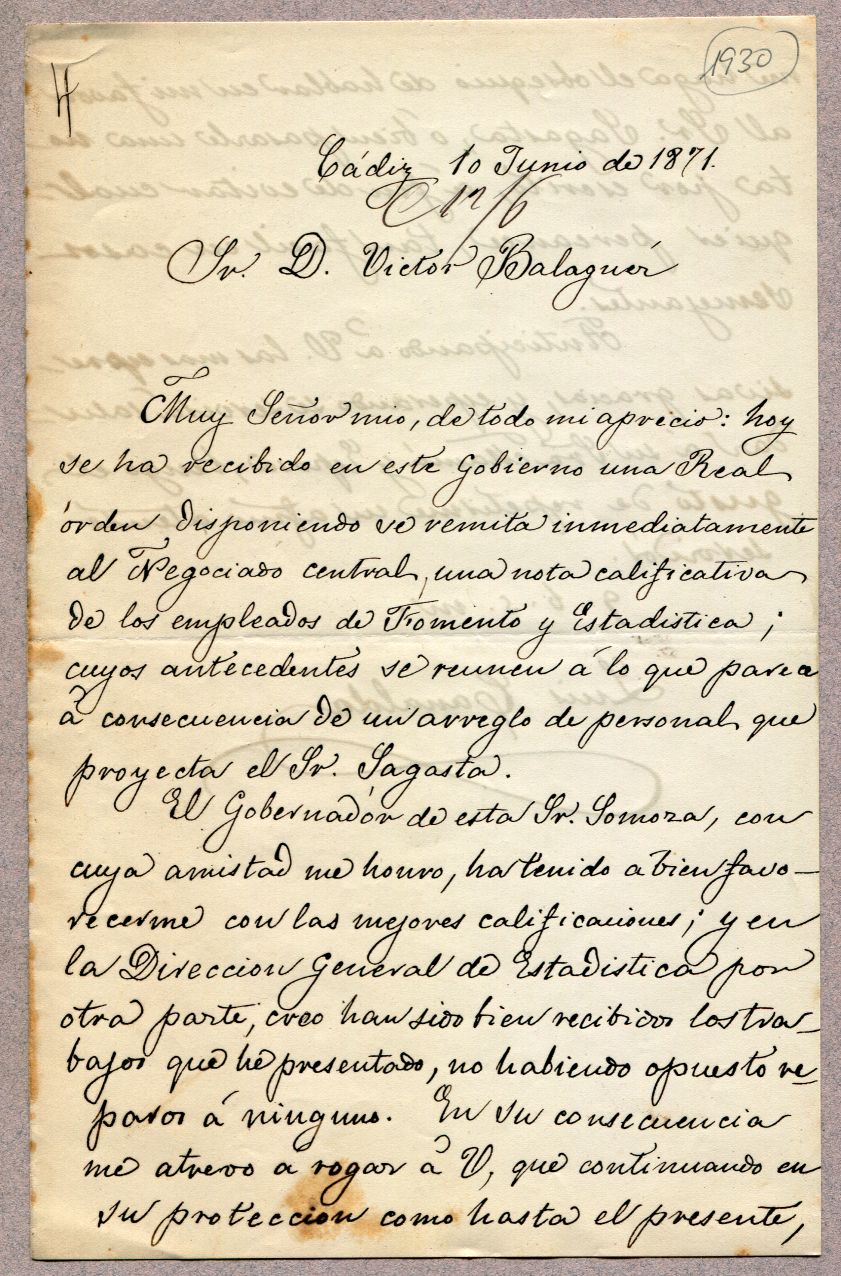 1930
4
Cádiz 10 Junio de 1871.
C 12/6
Sr. D. Victor Balaguér
Muy Señor mio, de todo mi aprecio: hoy
se ha recibido en este Gobierno una Real
órden disponiendo se remita inmediatamente
al Negociado central, una nota calificativa
de los empleados de Fomento y Estadistica;
cuyos antecedentes se reunen á lo que parece
á consecuencia de un arreglo de personal que
proyecta el Sr. Sagasta.
El Gobernadór de esta Sr. Somoza, con
cuya amistad me honro, ha tenido a bien favo-
recerme con las mejores calificaciones; y en
la Direccion General de Estadistica por
otra parte, creo han sido bien recibidos los tra-
bajos que hé presentado, no habiendo opuesto re-
paros á ninguno. En su consecuencia
me atrevo a rogar á V, que continuando en
su proteccion como hasta el presente,